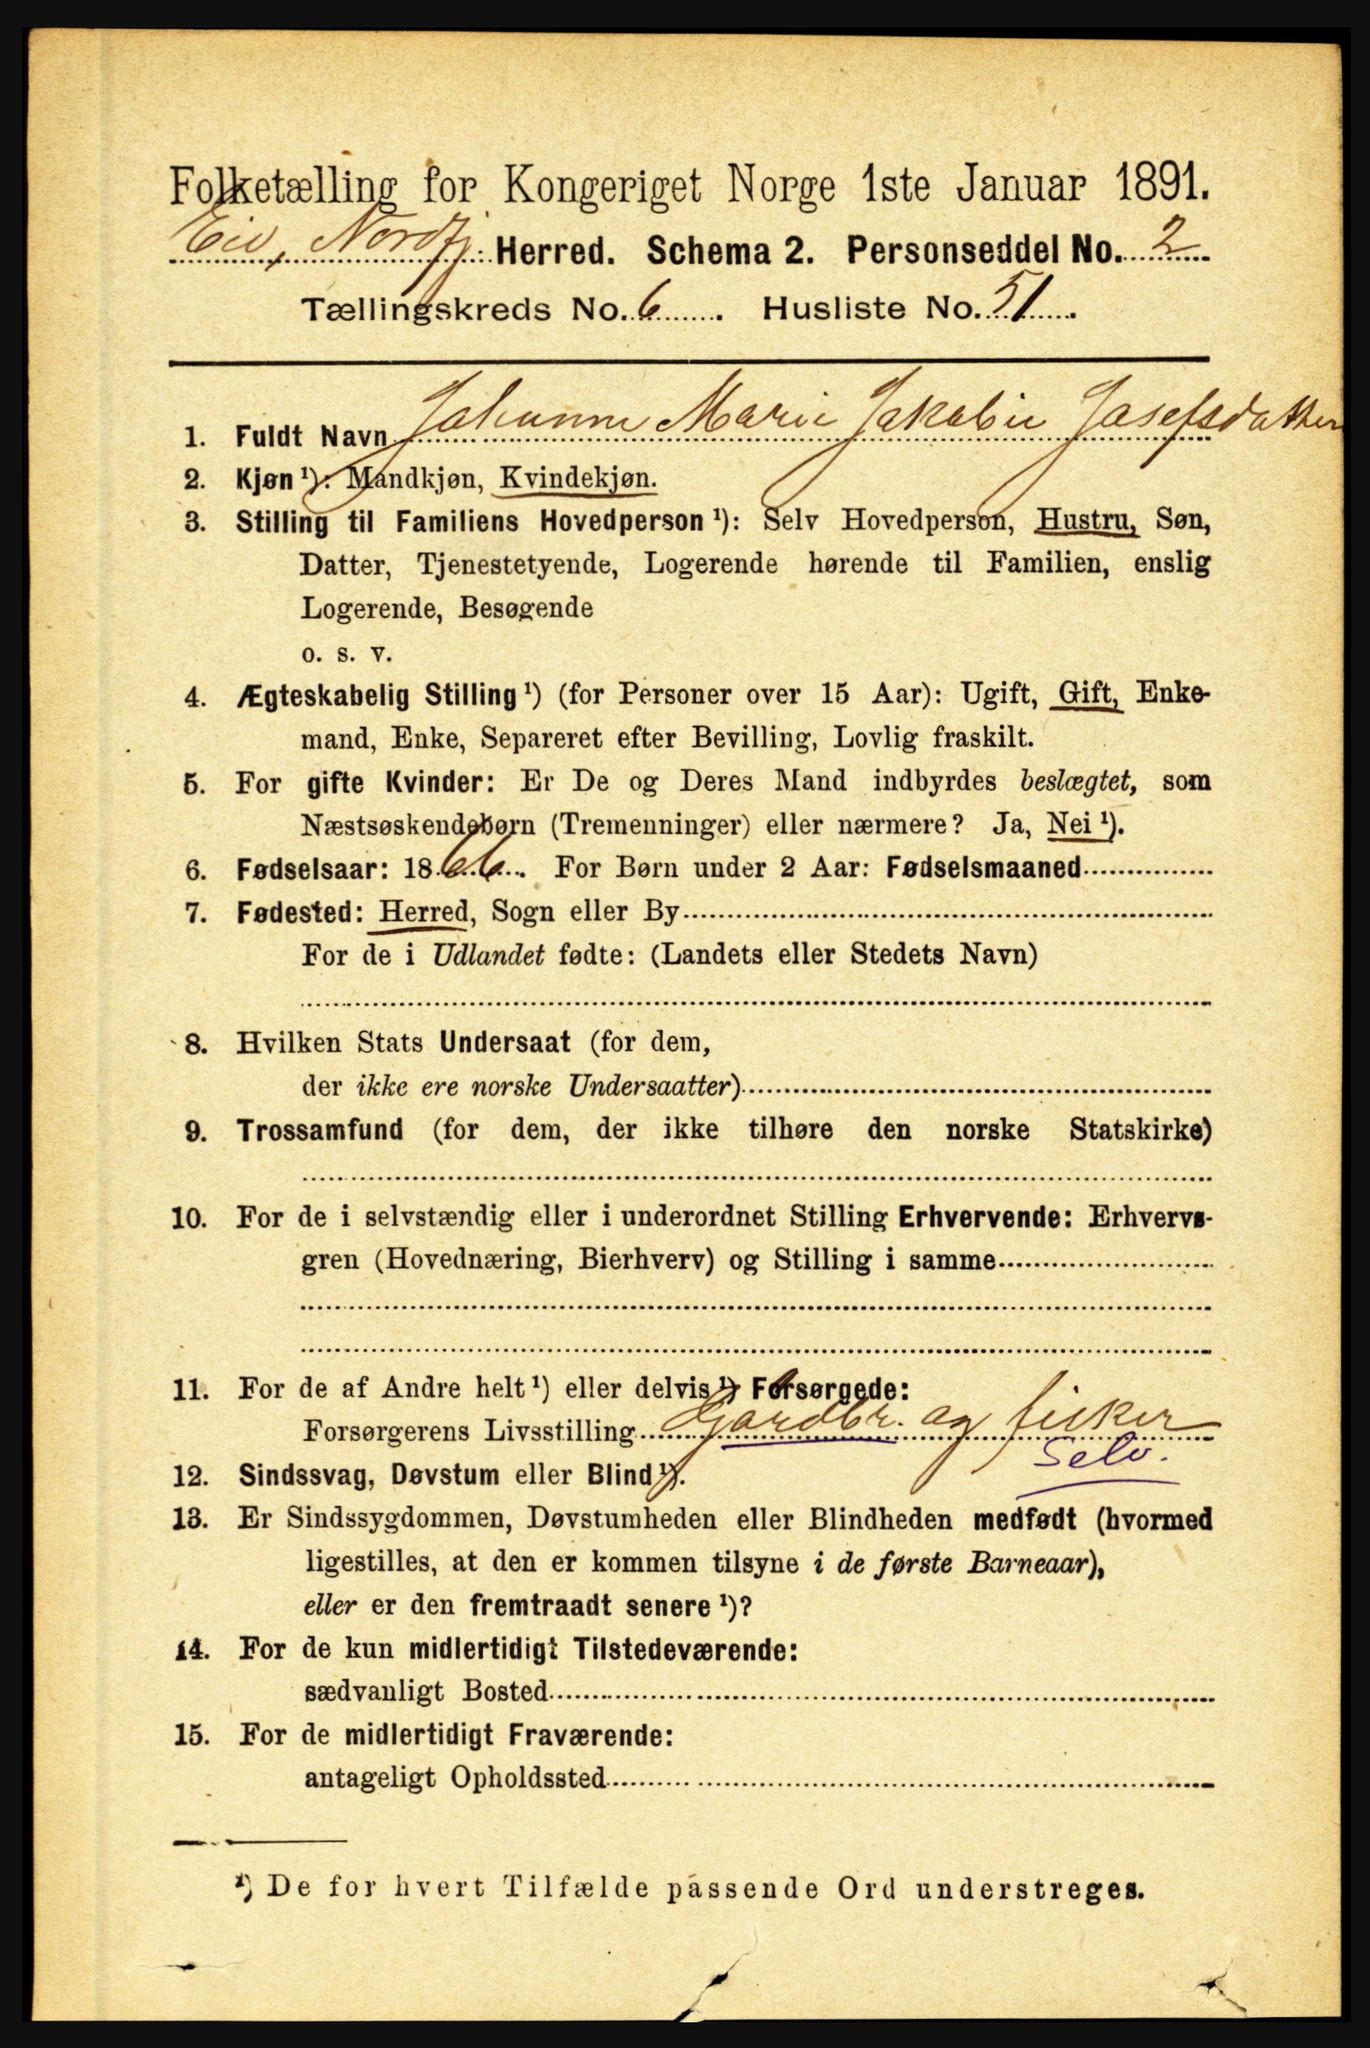 Folketælling for Kongeriget Norge 1ste Januar 1891.
Eid, Nordfj. Herred. Schema 2. Personseddel No. 2
Tællingskreds No. 6. Husliste No. 51.
1. Fuldt Navn Johanne Marie Jakobie Josefsdatter
2. Kjøn ¹): Mandkjøn, Kvindekjøn.
3. Stilling til Familiens Hovedperson ¹): Selv Hovedperson, Hustru, Søn,
Datter, Tjenestetyende, Logerende hørende til Familien, enslig
Logerende, Besøgende
o. s. v.
4. Ægteskabelig Stilling ¹) (for Personer over 15 Aar): Ugift, Gift, Enke-
mand, Enke, Separeret efter Bevilling, Lovlig fraskilt.
5. For gifte Kvinder: Er De og Deres Mand indbyrdes beslægtet, som
Næstsøskendebørn (Tremenninger) eller nærmere? Ja, Nei ¹).
6. Fødselsaar: 1866. For Børn under 2 Aar: Fødselsmaaned
7. Fødested: Herred, Sogn eller By
For de i Udlandet fødte: (Landets eller Stedets Navn)
8. Hvilken Stats Undersaat (for dem,
der ikke ere norske Undersaatter)
9. Trossamfund (for dem, der ikke tilhøre den norske Statskirke)
10. For de i selvstændig eller i underordnet Stilling Erhvervende: Erhvervs-
gren (Hovednæring, Bierhverv) og Stilling i samme
11. For de af Andre helt ¹) eller delvis ¹) Forsørgede:
Forsørgerens Livsstilling Gardbr. og fisker
Selv.
12. Sindssvag, Døvstum eller Blind ¹).
13. Er Sindssygdommen, Døvstumheden eller Blindheden medfødt (hvormed
ligestilles, at den er kommen tilsyne i de første Barneaar),
eller er den fremtraadt senere ¹)?
14. For de kun midlertidigt Tilstedeværende:
sædvanligt Bosted
15. For de midlertidigt Fraværende:
antageligt Opholdssted
¹) De for hvert Tilfælde passende Ord understreges.